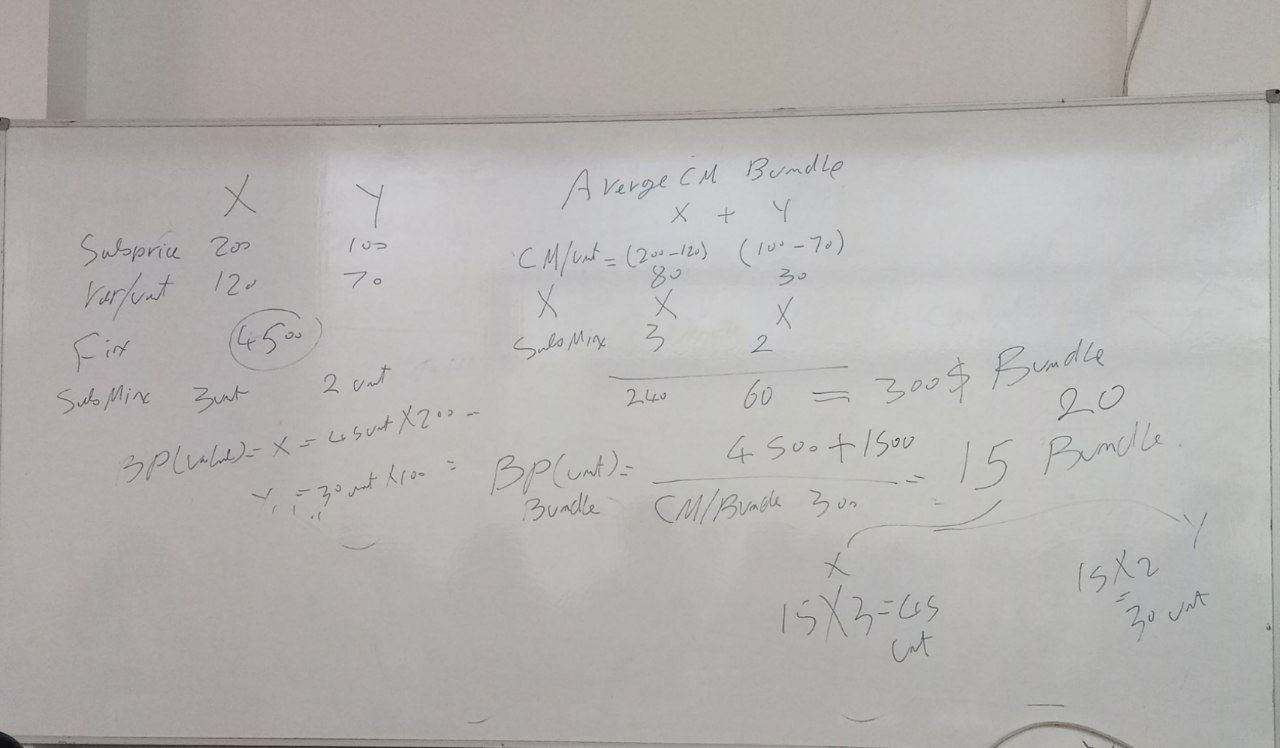 X Y
Salsprice 200 100
Var/unt 120 70
Fix 4500
SalsMix 3unt 2 unt
BP(value)= X = 45unt X 200 =
Y = 30 unt X 100 =
Averge CM Bundle
X + Y
CM/unt = (200-120) (100-70)
80 30
X X X
SalsMix 3 2
240 60 = 300$ Bundle
20
BP(unt)= 4500+1500 = 15 Bundle
Bundle CM/Bundle 300
X Y
15X3=45 unt
15X2 = 30 unt